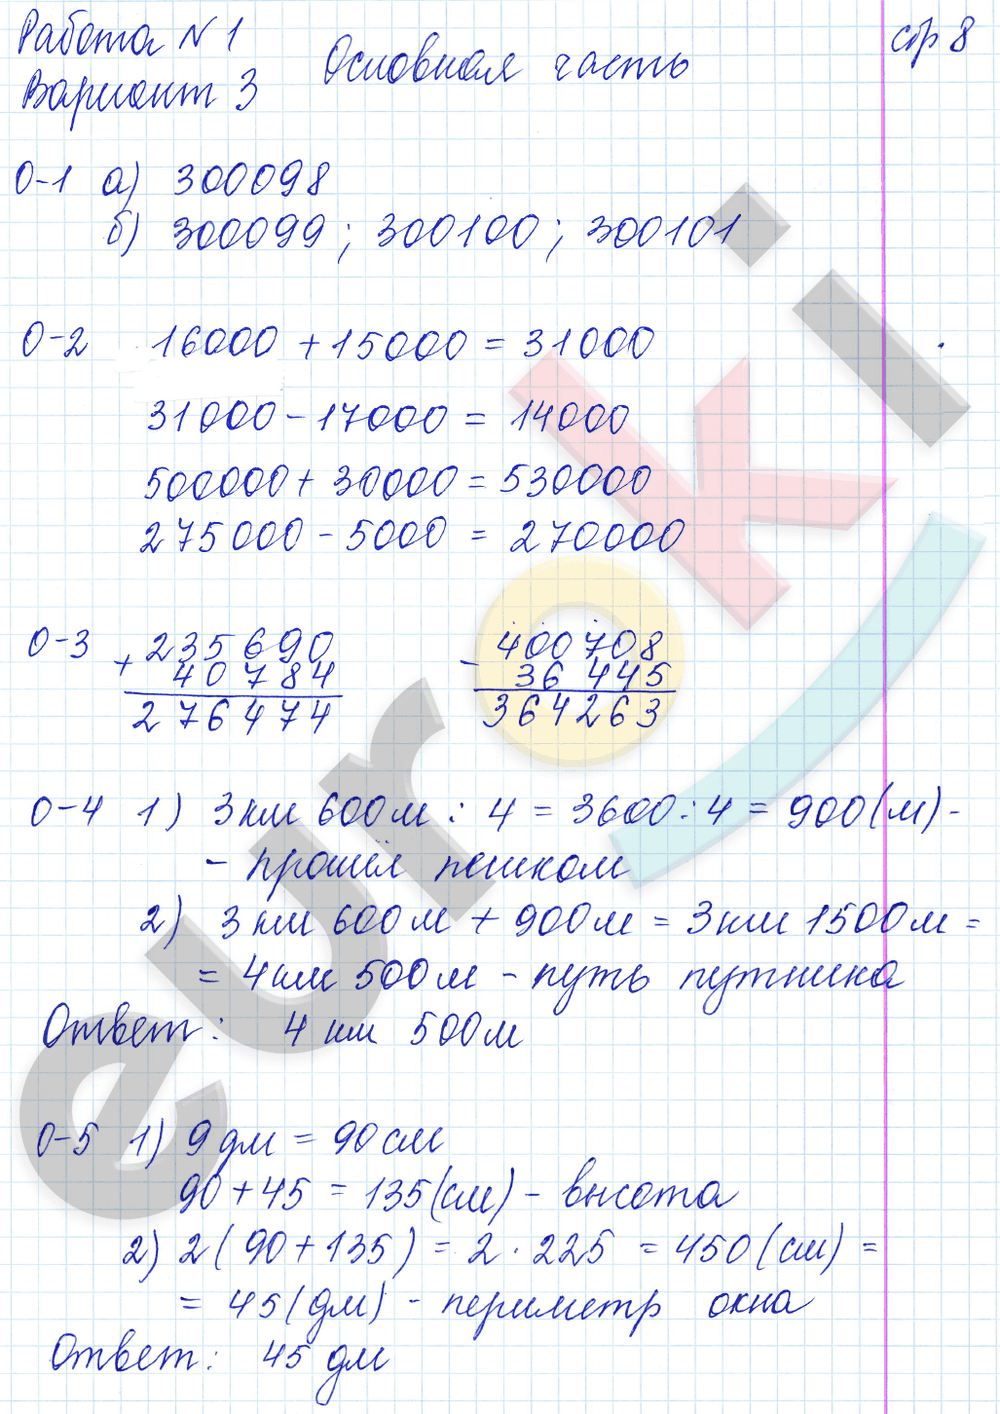 Работа N 1
стр 8
Вариант 3
Основная часть
0-1 а) 300098
б) 300099; 300100; 300101
0-2 16000 + 15000 = 31000
31000 - 17000 = 14000
500000 + 30000 = 530000
275000 - 5000 = 270000
0-3 + 235690 - 400708
40784 36445
276474 364263
0-4 1) 3 км 600 м : 4 = 3600 : 4 = 900 (м) -
- прошёл пешком
2) 3 км 600 м + 900 м = 3 км 1500 м =
= 4 км 500 м - путь путника
Ответ: 4 км 500 м
0-5 1) 9 дм = 90 см
90 + 45 = 135 (см) - высота
2) 2(90 + 135) = 2 · 225 = 450 (см) =
= 45 (дм) - периметр окна
Ответ: 45 дм
euroki